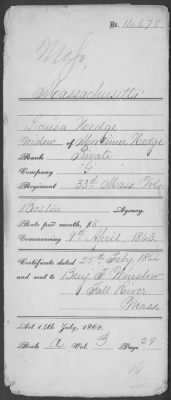 No. 14,678
Massachusetts
Louisa Hodge
Widow of Mortimer Hodge
Rank Private
Company "G"
Regiment 33rd Mass. Vols
Boston Agency.
Rate per month, $8
Commencing 9th April, 1863.
Certificate dated 25th Feby 1864
and sent to Benj. F. Winslow
Fall River
Mass
Act 14th July, 1862.
Book A Vol. 3 Page 29